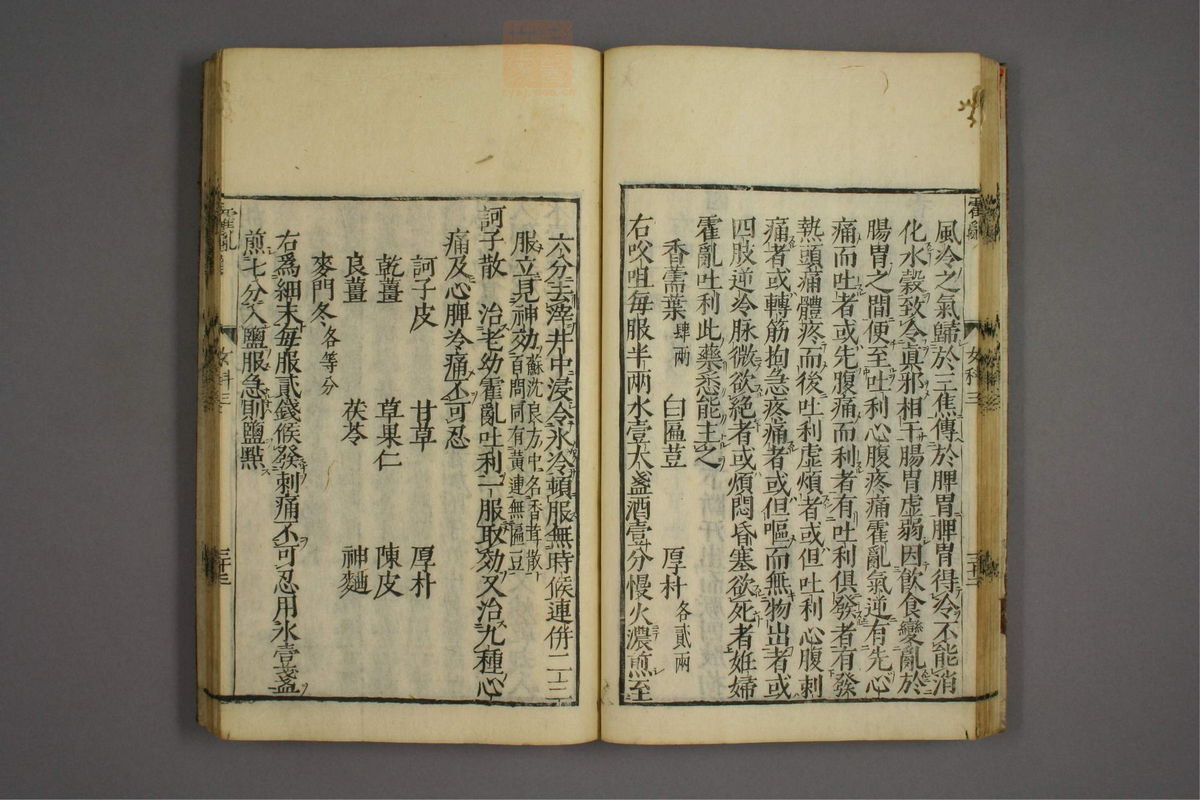 風冷之氣歸於三焦傳於脾胃脾胃得冷不能消
化水穀致令眞邪相干腸胃虛弱因飮食變亂於
腸胃之間便至吐利心腹疼痛霍亂氣逆有先心
痛而吐者或先腹痛而利者有吐利俱發者有發
熱頭痛體疼而後吐利虛煩者或但吐利心腹刺
痛者或轉筋拘急疼痛者或但嘔而無物出者或
四肢逆冷脉微欲絕者或煩悶昏塞欲死者姙婦
霍亂吐利此藥悉能主之
香薷葉 肆兩 白匾荳 厚朴 各貳兩
右㕮咀每服半兩水壹大盞酒壹分慢火濃煎至
霍亂
女科三
三十二
六分去滓井中浸令氷冷頓服無時候連併二三
服立見神効 蘇沈良方中名香茸散
百問同有黃連無匾豆
訶子散 治老幼霍亂吐利一服取効又治九種心
痛及心脾冷痛不可忍
訶子皮 甘草 厚朴
乾薑 草果仁 陳皮
良薑 茯苓 神麯
麥門冬 各等分
右爲細末每服貳錢候發刺痛不可忍用水壹盞
煎七分入鹽服急則鹽點
霍亂
女科三
三十三